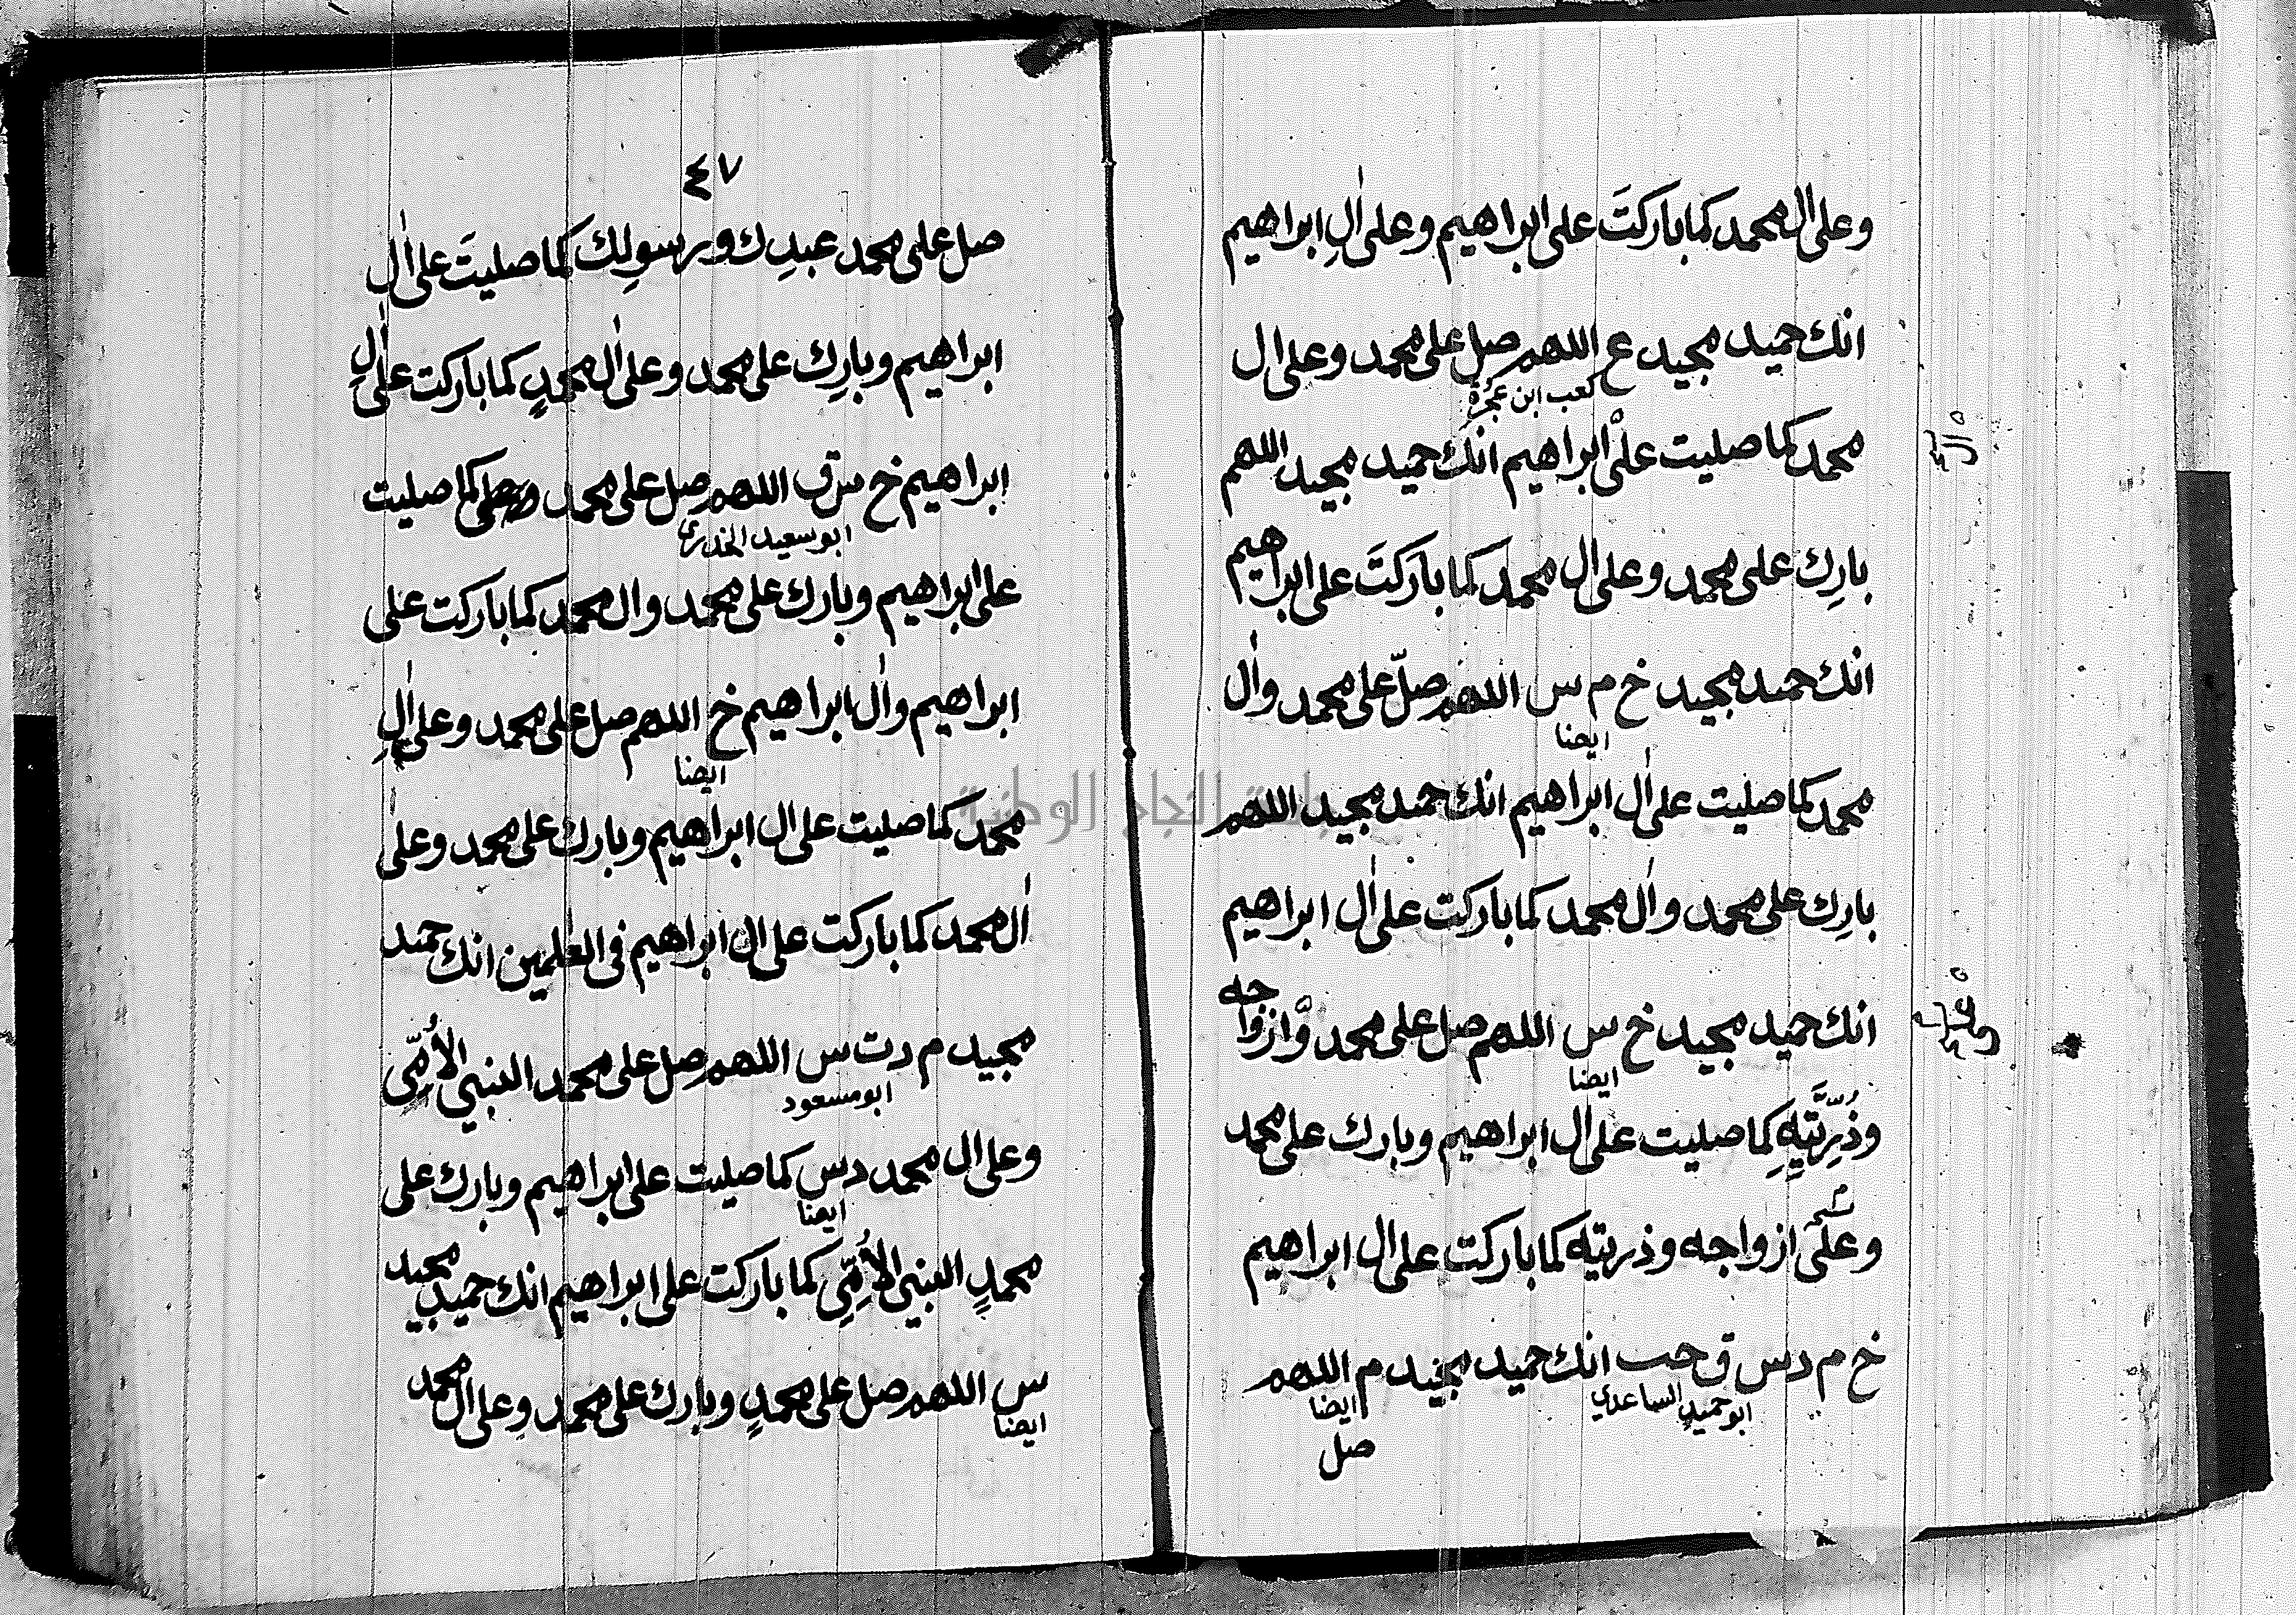 وعلى ال محمد كما باركتَ على ابراهيم وعلى اٰلِ ابراهيم
انك حميد مجيد ع اللهم صل على محمد وعلى ال
كعب ابن عجرة
محمد كما صليت على ابراهيم انك حميد مجيد اللهم
ه ال
بارِك على محمد وعلى ال محمد كما باركتَ على ابراهيم
انك حميد مجيد خ م س اللهم صلّ على محمد واٰل
ايضا
محمد كما صليت على اٰل ابراهيم انك حميد مجيد اللهم
بارِك على محمد واٰل محمد كما باركت على اٰل ابراهيم
انك حميد مجيد خ س اللهم صل على محمد وازواجه
ايضا
وذُرِّيَّتِهِ كما صليت على ال ابراهيم وبارك على محمد
وعلى ازواجه وذريته كما باركت على ال ابراهيم
خ م د س ق حب انك حميد مجيد م اللهم
ابو حميد الساعدي
ايضا
صل
٤٧
صل على محمد عبدِك ورسولِك كما صليتَ على اٰل
ابراهيم وبارِك على محمد وعلى اٰل محمدٍ كما باركت على اٰلِ
ابراهيم خ س ق اللهم صل على محمد كما صليت
ابو سعيد الخدرى
على ابراهيم وبارك على محمد وال محمد كما باركت على
ابراهيم واٰل ابراهيم خ اللهم صل على محمد وعلى اٰلِ
ايضا
محمد كما صليت على ال ابراهيم وبارك على محمد وعلى
اٰل محمد كما باركت على ال ابراهيم فى العٰلمين انك حميد
مجيد م د ت س اللهم صل على محمد النبي الاُمِّى
ابو مسعود
وعلى ال محمد د س كما صليت على ابراهيم وبارك على
ايضا
محمدٍ النبي الاُمِّى كما باركت على ابراهيم انك حميد مجيد
س اللهم صل على محمدٍ وبارك على محمد وعلى ال محمد
ايضا
جامعة النجاح الوطنية